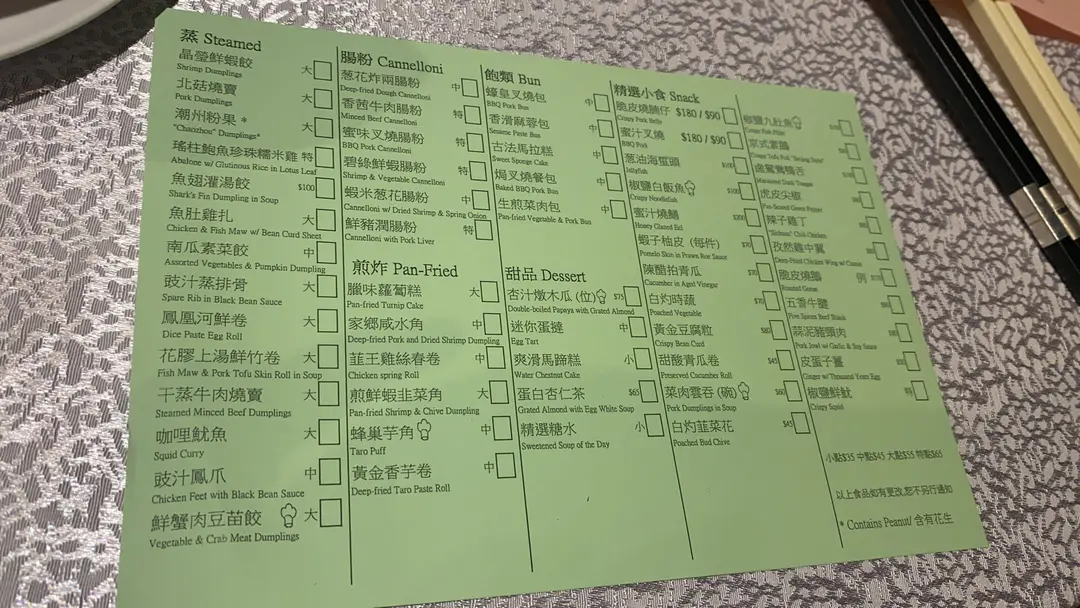 蒸 Steamed
晶瑩鮮蝦餃 大
Shrimp Dumplings
北菇燒賣 大
Pork Dumplings
潮州粉果 * 大
"Chaozhou" Dumplings*
瑤柱鮑魚珍珠糯米雞 特
Abalone w/ Glutinous Rice in Lotus Leaf
魚翅灌湯餃 $100
Shark's Fin Dumpling in Soup
魚肚雞扎 大
Chicken & Fish Maw w/ Bean Curd Sheet
南瓜素菜餃 中
Assorted Vegetables & Pumpkin Dumpling
豉汁蒸排骨 大
Spare Rib in Black Bean Sauce
鳳凰河鮮卷 大
Dice Paste Egg Roll
花膠上湯鮮竹卷 大
Fish Maw & Pork Tofu Skin Roll in Soup
干蒸牛肉燒賣 大
Steamed Minced Beef Dumplings
咖哩魷魚 大
Squid Curry
豉汁鳳爪 中
Chicken Feet with Black Bean Sauce
鮮蟹肉豆苗餃 大
Vegetable & Crab Meat Dumplings
腸粉 Cannelloni
葱花炸兩腸粉 中
Deep-fried Dough Cannelloni
香茜牛肉腸粉 特
Minced Beef Cannelloni
蜜味叉燒腸粉 特
BBQ Pork Cannelloni
碧綠鮮蝦腸粉 特
Shrimp & Vegetable Cannelloni
蝦米葱花腸粉 中
Cannelloni w/ Dried Shrimp & Spring Onion
鮮豬潤腸粉 特
Cannelloni with Pork Liver
煎炸 Pan-Fried
臘味蘿蔔糕 大
Pan-fried Turnip Cake
家鄉咸水角 中
Deep-fried Pork and Dried Shrimp Dumpling
韮王雞絲春卷 中
Chicken spring Roll
煎鮮蝦韭菜角 大
Pan-fried Shrimp & Chive Dumpling
蜂巢芋角 中
Taro Puff
黃金香芋卷 中
Deep-fried Taro Paste Roll
飽類 Bun
蠔皇叉燒包 中
BBQ Pork Bun
香滑麻蓉包 中
Sesame Paste Bun
古法馬拉糕 中
Sweet Sponge Cake
焗叉燒餐包 中
Baked BBQ Pork Bun
生煎菜肉包 中
Pan-fried Vegetable & Pork Bun
甜品 Dessert
杏汁燉木瓜 (位) $75
Double-boiled Papaya with Grated Almond
迷你蛋撻 中
Egg Tart
爽滑馬蹄糕 小
Water Chestnut Cake
蛋白杏仁茶 $65
Grated Almond with Egg White Soup
精選糖水 小
Sweetened Soup of the Day
精選小食 Snack
脆皮燒腩仔 $180 / $90
Crispy Pork Belly
蜜汁叉燒 $180 / $90
BBQ Pork
葱油海蜇頭 $100
Jellyfish
椒鹽白飯魚 $100
Crispy Noodlefish
蜜汁燒鱔 $200
Honey Glazed Eel
蝦子柚皮 (每件) $70
Pomelo Skin in Prawn Roe Sauce
陳醋拍青瓜 $70
Cucumber in Aged Vinegar
白灼時蔬 $70
Poached Vegetable
黃金豆腐粒 $80
Crispy Bean Curd
甜酸青瓜卷 $45
Preserved Cucumber Roll
菜肉雲吞 (碗) $60
Pork Dumplings in Soup
白灼韮菜花 $45
Poached Bud Chive
椒鹽九肚魚
京式素鵝
鹵鴛鴦鴨舌
Marinated Duck Tongue
虎皮尖椒
Pan-Seared Green Pepper
辣子雞丁
"Sichuan" Chili Chicken
孜然雞中翼
Deep-Fried Chicken Wing w/ Cumin
脆皮燒鵝 例
Roasted Goose
五香牛𦟌
Five Spices Beef Shank
蒜泥豬頭肉
Pork Jowl w/ Garlic & Soy Sauce
皮蛋子薑
Ginger w/ Thousand Years Egg
椒鹽鮮魷 特
Crispy Squid
小點$35 中點$45 大點$55 特點$65
以上食品如有更改,恕不另行通知
* Contains Peanut/ 含有花生